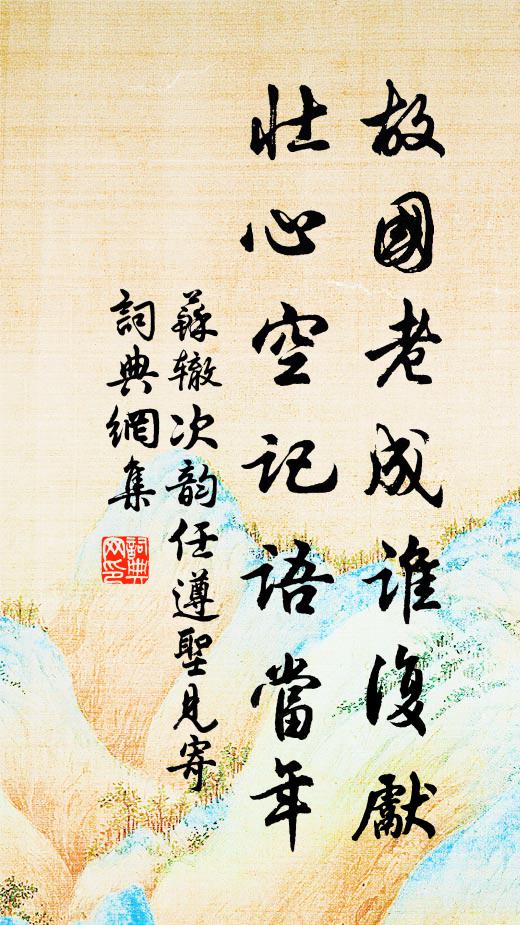 故國老成誰復獻
壯心空記語當年
蘇辙次韵任遵聖見寄
詞典網集
詞典
网印